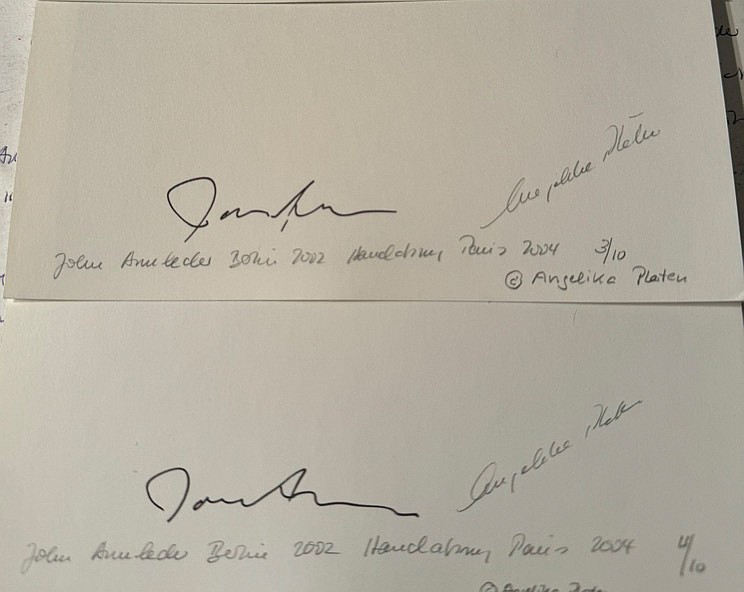 Angelika Platen
John Armleder Berlin 2002 Handabzug Paris 2004 3/10
© Angelika Platen
Angelika Platen
John Armleder Berlin 2002 Handabzug Paris 2004 4/10
© Angelika Platen